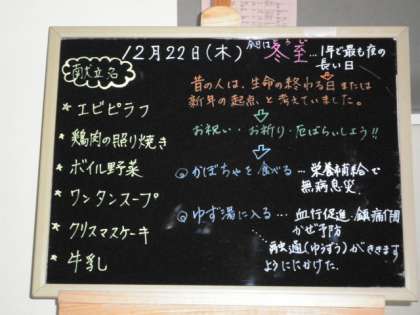 12月22日(木) 今日は冬至…1年で最も夜の
とうじ
長い日
献立名
* エビピラフ
* 鶏肉の照り焼き
* ボイル野菜
* ワンタンスープ
* クリスマスケーキ
* 牛乳
昔の人は、生命の終わる日または
新年の起点と考えていました。
お祝い・お祈り・厄ばらいしよう!!
◎かぼちゃを食べる… 栄養補給で
無病息災
◎ゆず湯に入る… 血行促進・鎮痛作用
かぜ予防
融通(ゆうずう)がききます
ようににかけた。